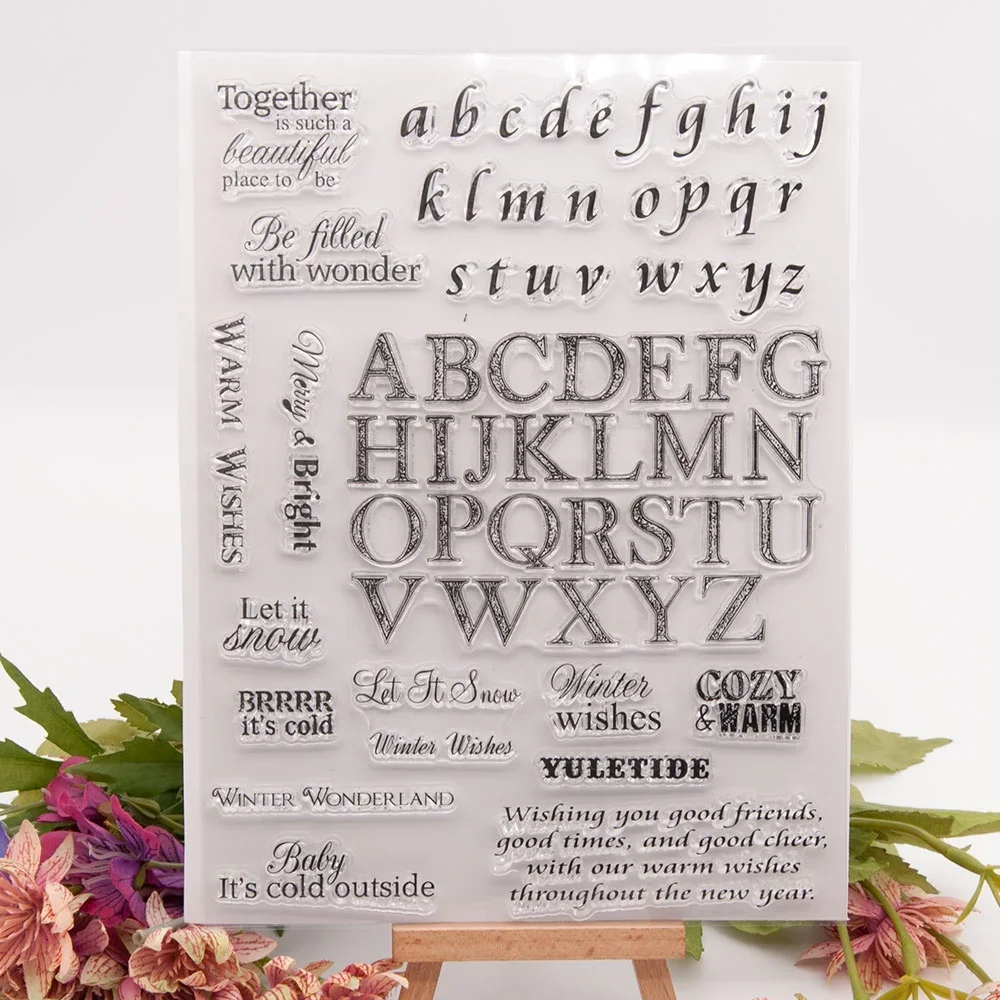 Together
is such a
beautiful
place to be
a b c d e f g h i j
k l m n o p q r
s t u v w x y z
Be filled
with wonder
WARM WISHES
Merry & Bright
A B C D E F G
H I J K L M N
O P Q R S T U
V W X Y Z
Let it
snow
BRRRR
it's cold
Let It Snow
Winter Wishes
Winter
wishes
COZY
& WARM
YULETIDE
WINTER WONDERLAND
Baby
It's cold outside
Wishing you good friends,
good times, and good cheer,
with our warm wishes
throughout the new year.